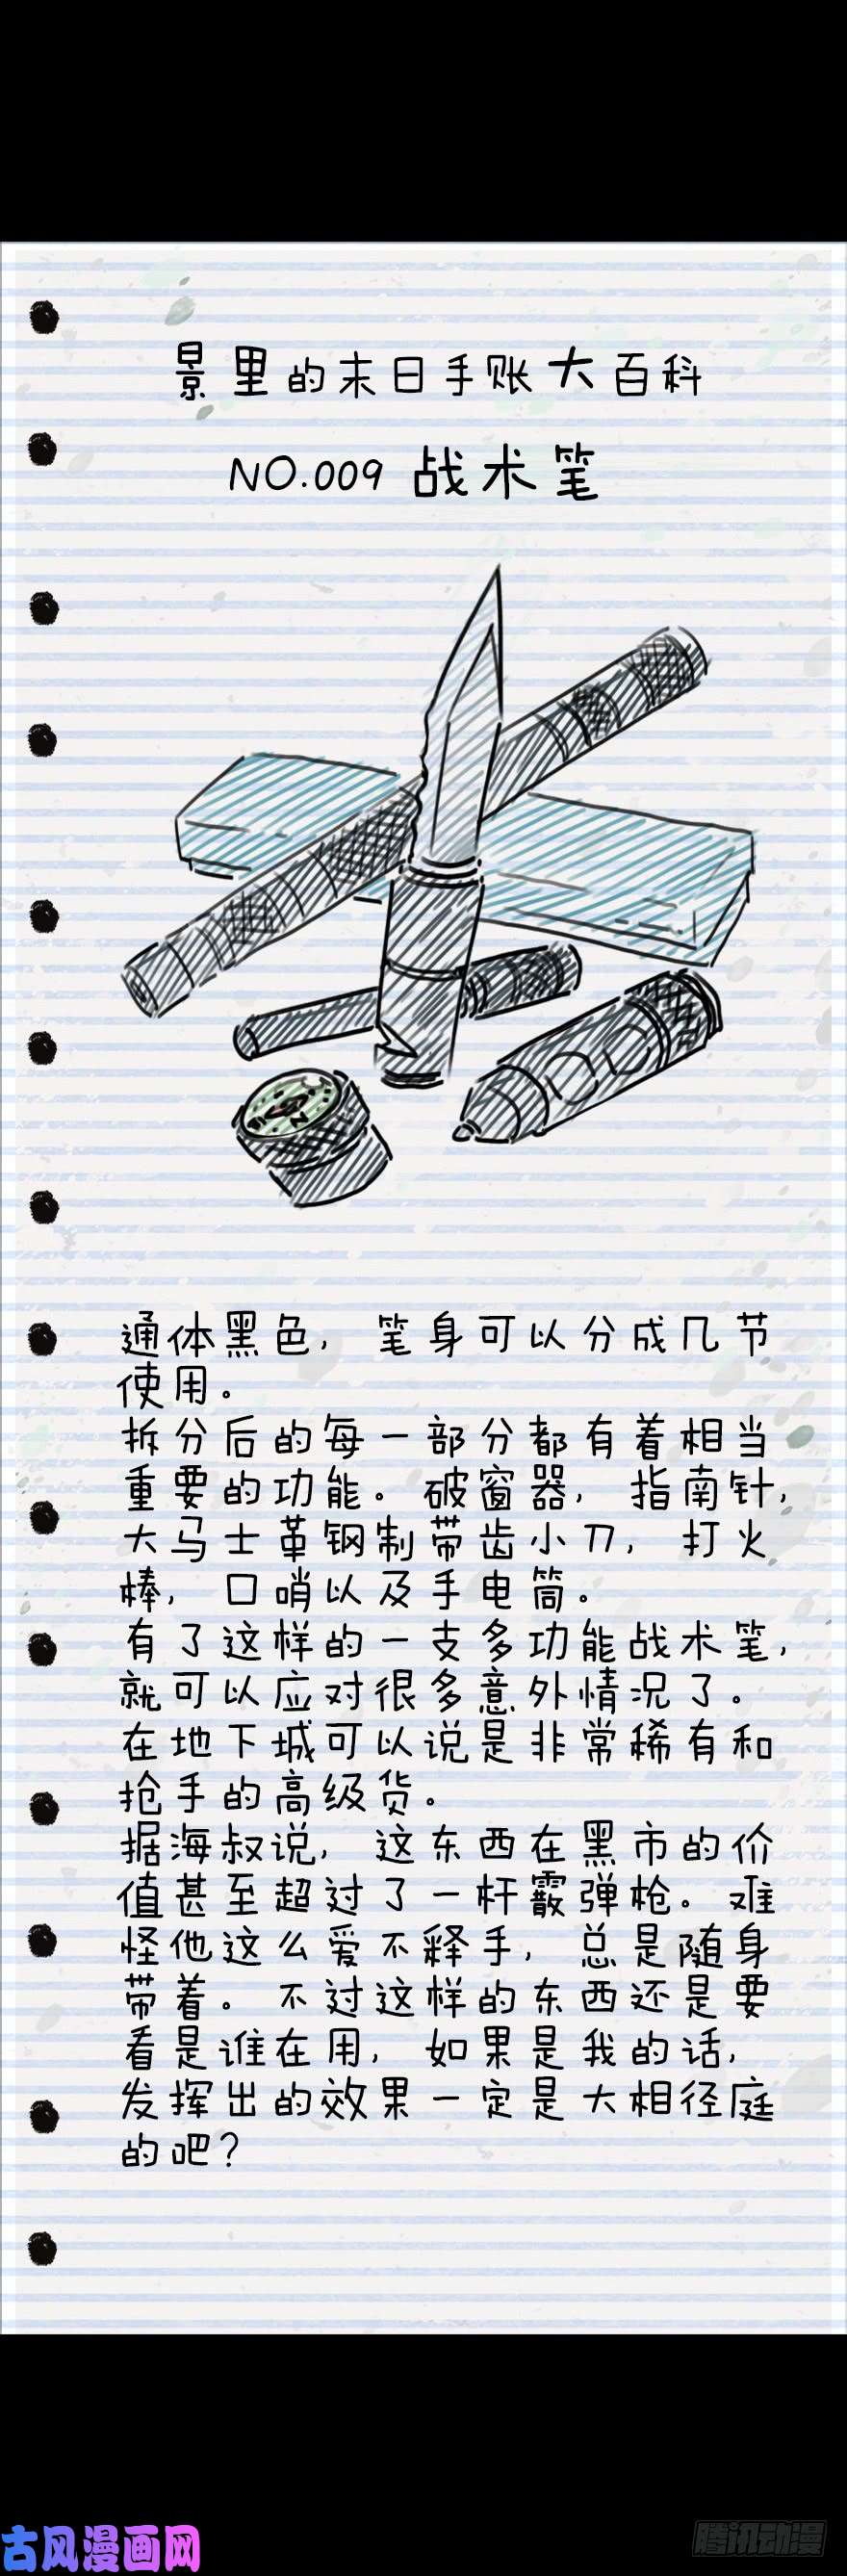 景里的末日手账大百科
NO.009 战术笔
通体黑色，笔身可以分成几节
使用。
拆分后的每一部分都有着相当
重要的功能。破窗器，指南针，
大马士革钢制带齿小刀，打火
棒，口哨以及手电筒。
有了这样的一支多功能战术笔，
就可以应对很多意外情况了。
在地下城可以说是非常稀有和
抢手的高级货。
据海叔说，这东西在黑市的价
值甚至超过了一杆霰弹枪。难
怪他这么爱不释手，总是随身
带着。不过这样的东西还是要
看是谁在用，如果是我的话，
发挥出的效果一定是大相径庭
的吧？
古风漫画网
腾讯动漫